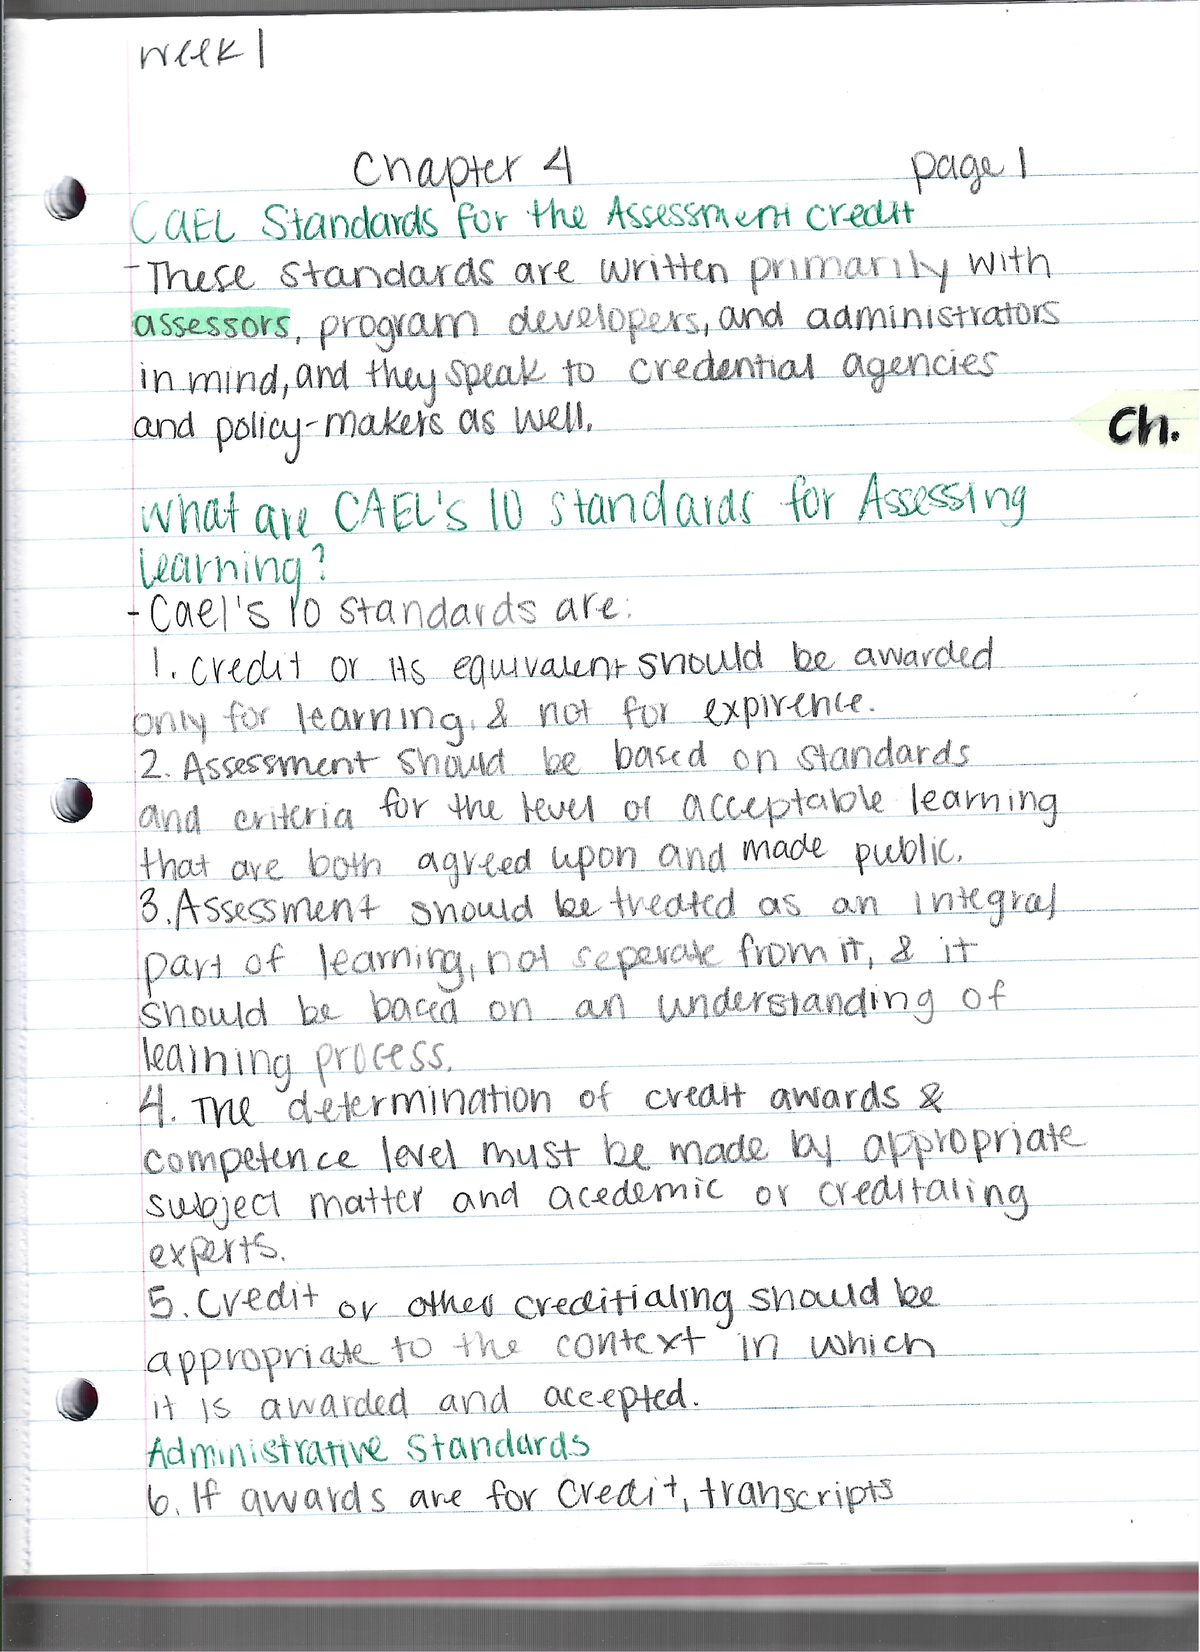 week 1
Chapter 4 page 1
CAEL Standards for the Assessment credit
- These standards are written primarily with
assessors, program developers, and administrators
in mind, and they speak to credential agencies
and policy-makers as well.
Ch.
What are CAEL's 10 standards for Assessing
learning?
- Cael's 10 standards are:
1. Credit or its equivalent should be awarded
only for learning, & not for expirence.
2. Assessment should be based on standards
and criteria for the level of acceptable learning
that are both agreed upon and made public.
3. Assessment should be treated as an integral
part of learning, not seperate from it, & it
should be baced on an understanding of
learning process.
4. The determination of credit awards &
competence level must be made by appropriate
subject matter and acedemic or creditaling
experts.
5. Credit or other creditialing should be
appropriate to the context in which
it is awarded and accepted.
Administrative Standards
6. If awards are for credit, transcripts